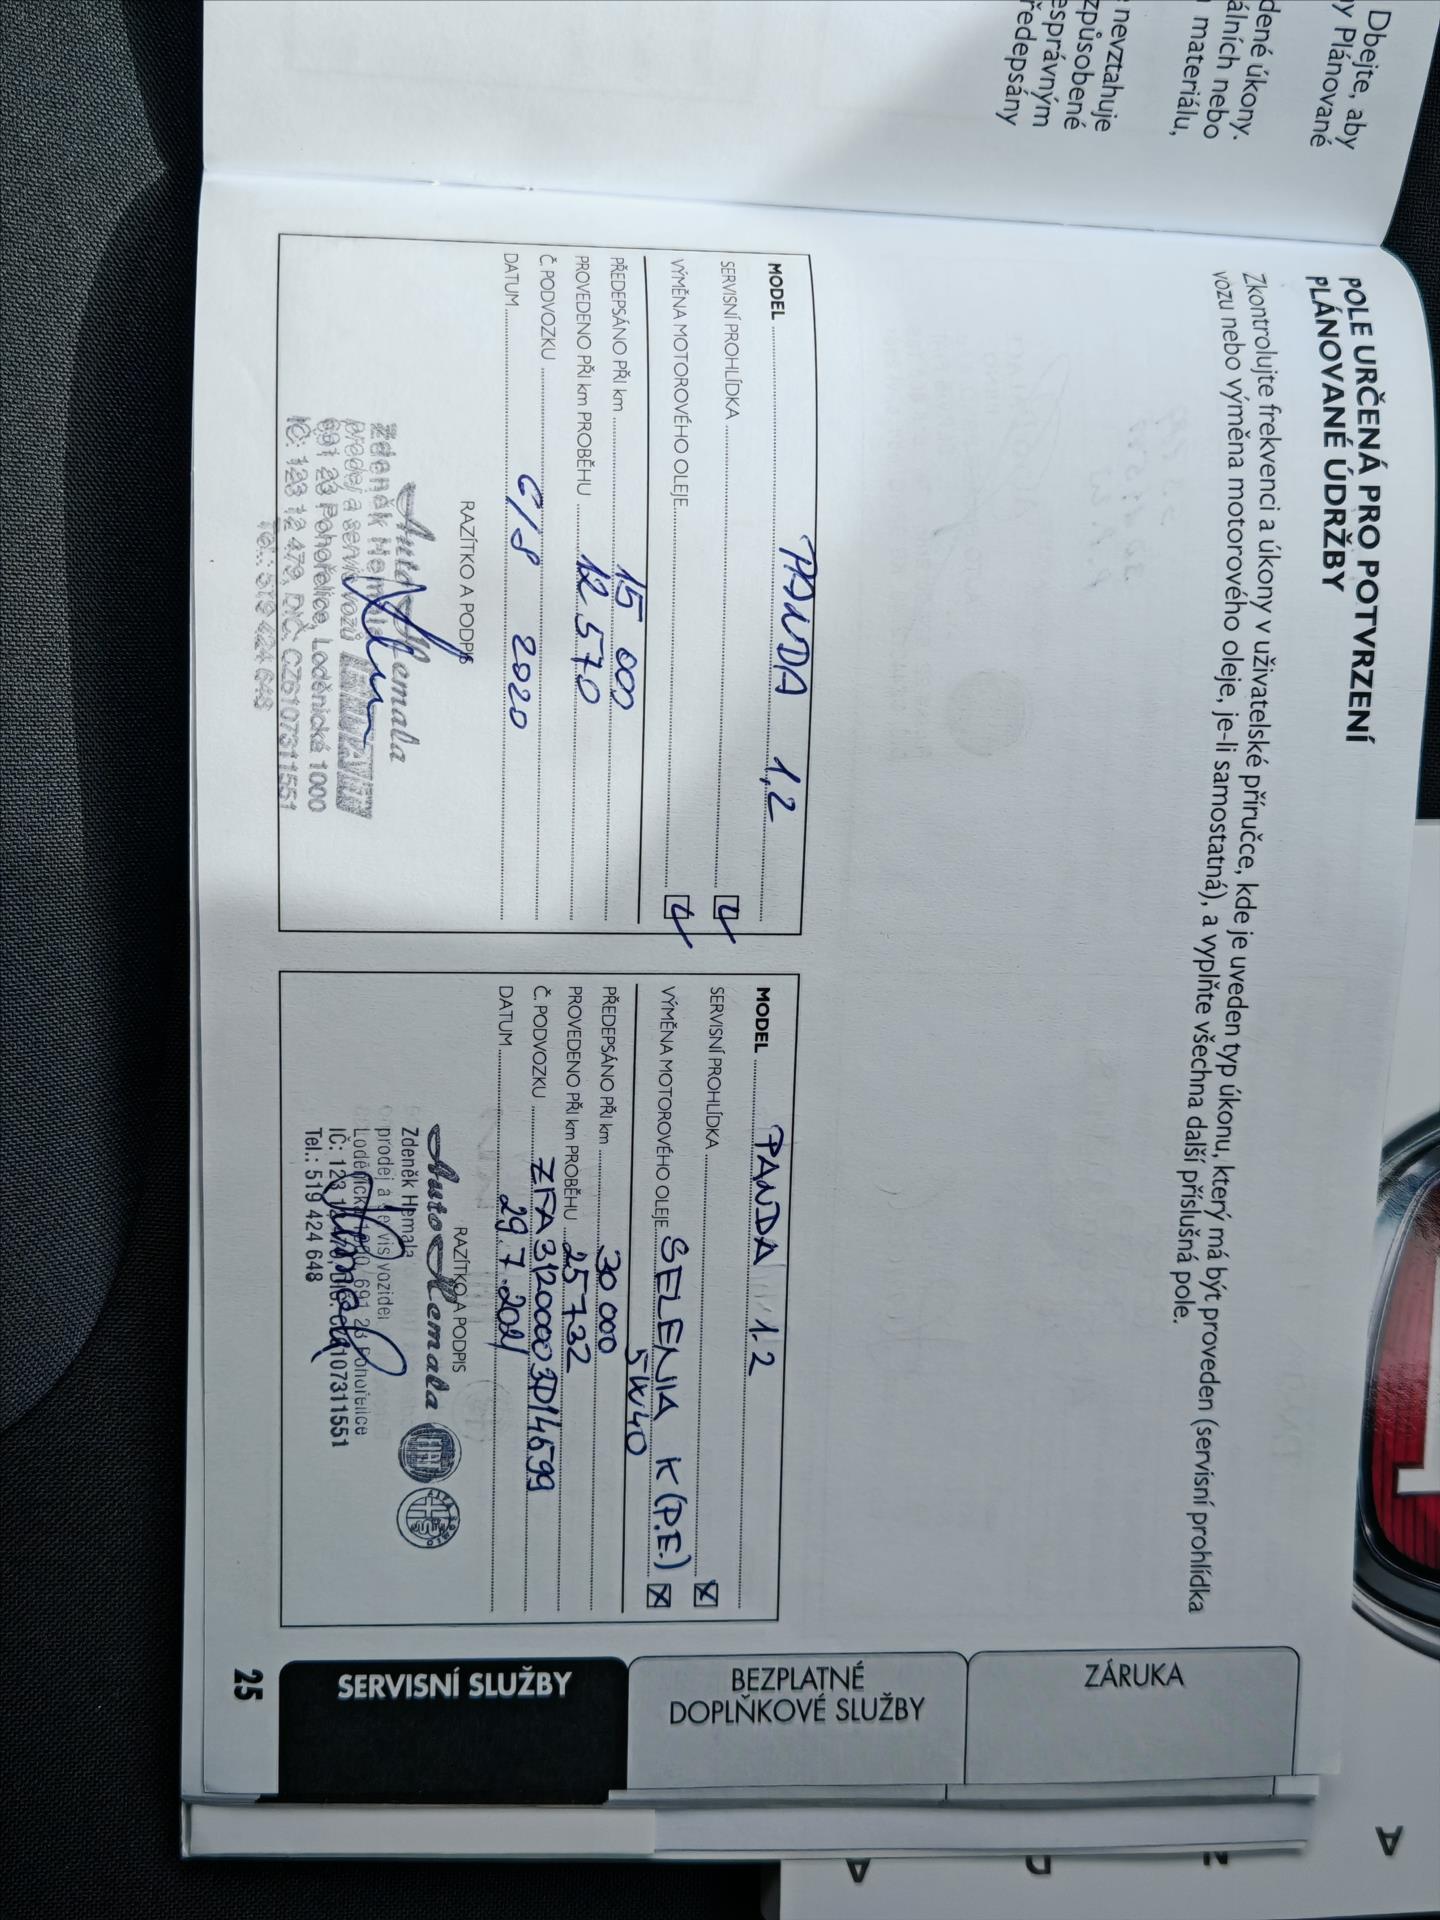 Dbejte, aby
y Plánované
dené úkony.
álních nebo
materiálu,
nevztahuje
způsobené
esprávným
ředepsány
POLE URČENÁ PRO POTVRZENÍ
PLÁNOVANÉ ÚDRŽBY
Zkontrolujte frekvenci a úkony v uživatelské příručce, kde je uveden typ úkonu, který má být proveden (servisní prohlídka
vozu nebo výměna motorového oleje, je-li samostatná), a vyplňte všechna další příslušná pole.
MODEL PANDA 1,2
SERVISNÍ PROHLÍDKA
VÝMĚNA MOTOROVÉHO OLEJE
PŘEDEPSÁNO PŘI km 15 000
PROVEDENO PŘI km PROBĚHU 12 570
Č. PODVOZKU
DATUM 6/8 2020
RAZÍTKO A PODPIS
Auto Hemala
Zdeněk Hemala
prodej a servis vozů
691 23 Pohořelice, Loděnická 1000
IČ: 123 12 479, DIČ: CZ6107311551
Tel.: 519 424 648
MODEL PANDA 1.2
SERVISNÍ PROHLÍDKA X
VÝMĚNA MOTOROVÉHO OLEJE SELENIA K (P.E.) X
5W40
PŘEDEPSÁNO PŘI km 30 000
PROVEDENO PŘI km PROBĚHU 25732
Č. PODVOZKU ZFA31200003D14599
DATUM 29.7.2021
RAZÍTKO A PODPIS
Auto Hemala
FIAT
Zdeněk Hemala
prodej a servis vozidel
Loděnická 1000, 691 23 Pohořelice
Tel.: 519 424 648
ZÁRUKA
BEZPLATNÉ
DOPLŇKOVÉ SLUŽBY
SERVISNÍ SLUŽBY
25